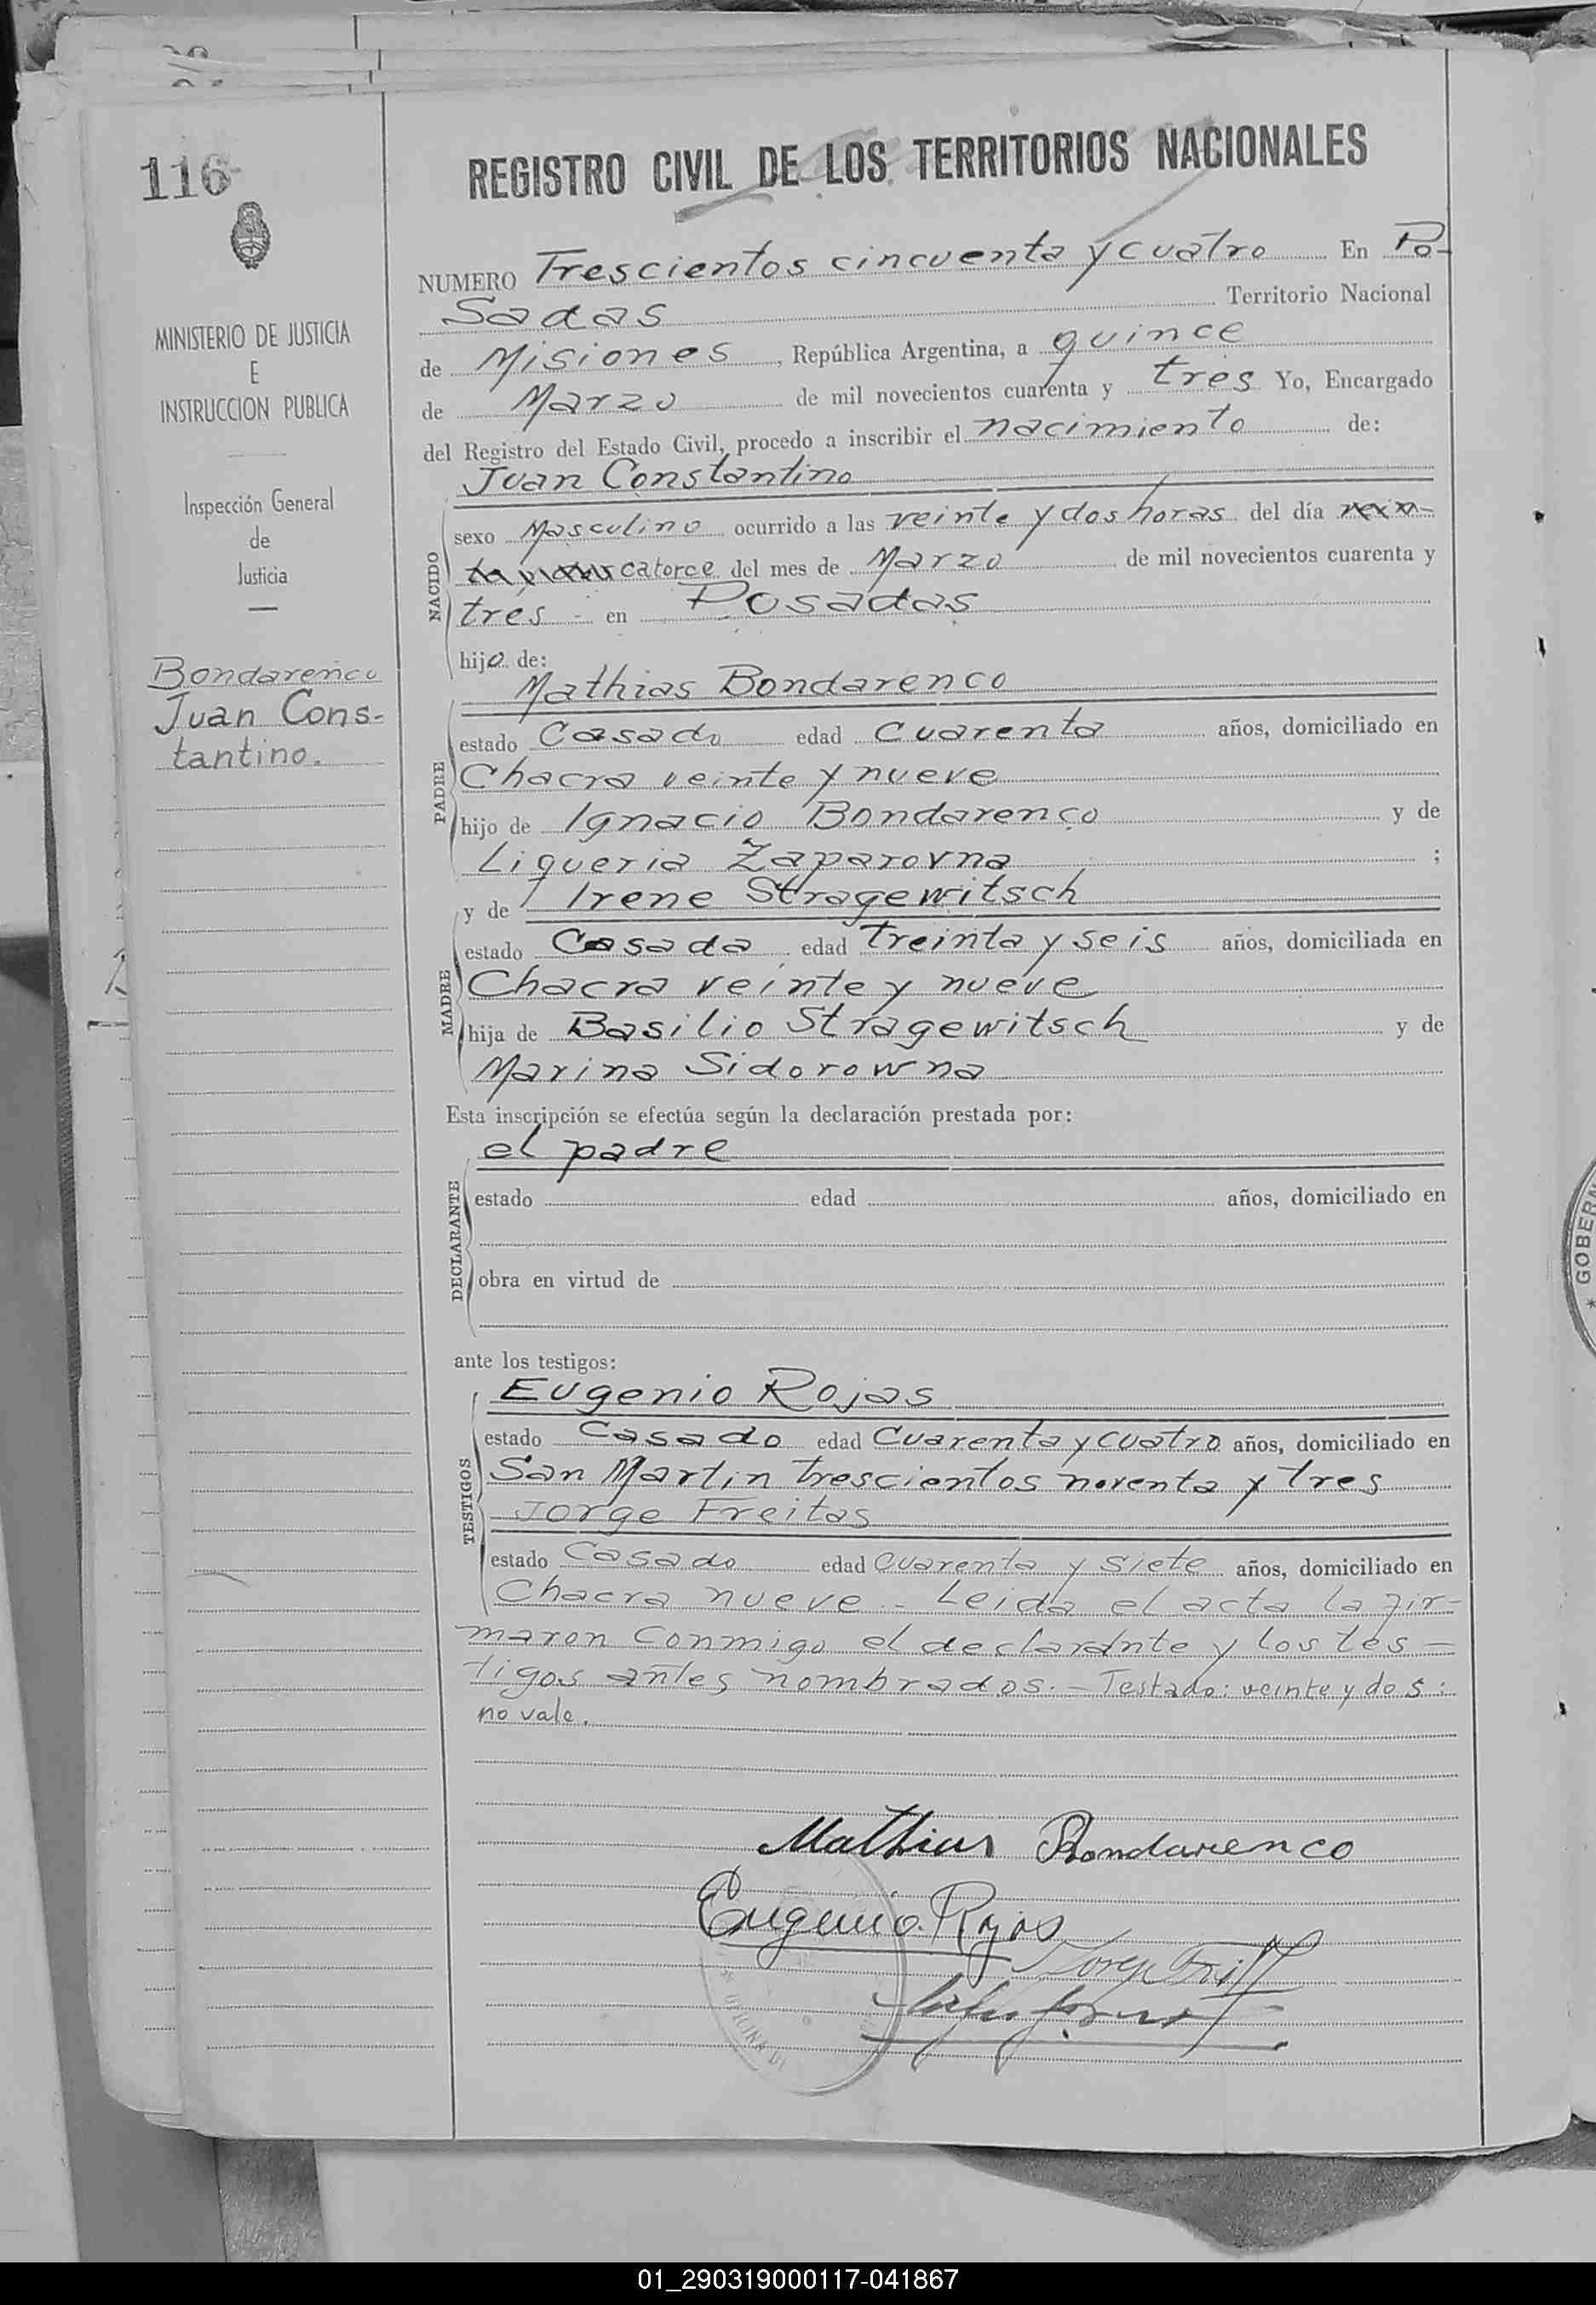 116
REGISTRO CIVIL DE LOS TERRITORIOS NACIONALES
MINISTERIO DE JUSTICIA
E
INSTRUCCION PUBLICA
Inspección General
de
Justicia
Bondarenco
Juan Cons-
tantino.
NUMERO Trescientos cincuenta y cuatro En Po-
sadas Territorio Nacional
de Misiones, República Argentina, a quince
de Marzo de mil novecientos cuarenta y tres Yo, Encargado
del Registro del Estado Civil, procedo a inscribir el nacimiento de:
Juan Constantino
NACIDO
sexo Masculino ocurrido a las veinte y dos horas del día
catorce del mes de Marzo de mil novecientos cuarenta y
tres - en Posadas
hijo de:
Mathias Bondarenco
PADRE
estado Casado edad Cuarenta años, domiciliado en
Chacra veinte y nueve
hijo de Ignacio Bondarenco y de
Liqueria Zaparovna ;
y de Irene Stragewitsch
MADRE
estado Casada edad treinta y seis años, domiciliada en
Chacra veinte y nueve
hija de Basilio Stragewitsch y de
Marina Sidorowna
Esta inscripción se efectúa según la declaración prestada por:
el padre
DECLARANTE
estado edad años, domiciliado en
obra en virtud de
ante los testigos:
Eugenio Rojas
TESTIGOS
estado Casado edad Cuarenta y cuatro años, domiciliado en
San Martin trescientos noventa y tres
Jorge Freitas
estado Casado edad Cuarenta y siete años, domiciliado en
Chacra nueve - Leida el acta la fir-
maron conmigo el declarante y los tes-
tigos antes nombrados. - Testado: veinte y dos:
no vale.
Mathias Bondarenco
Eugenio Rojas
* OFICINA DE
* GOBERN
01_290319000117-041867